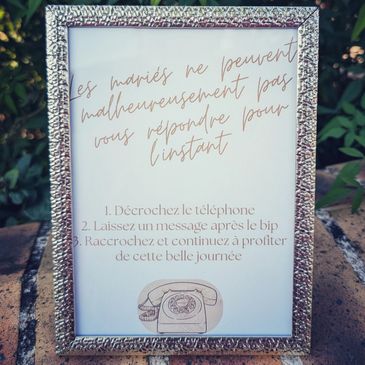 Les mariés ne peuvent
malheureusement pas
vous répondre pour
l'instant
1. Décrochez le téléphone
2. Laissez un message après le bip
3. Raccrochez et continuez à profiter
de cette belle journée